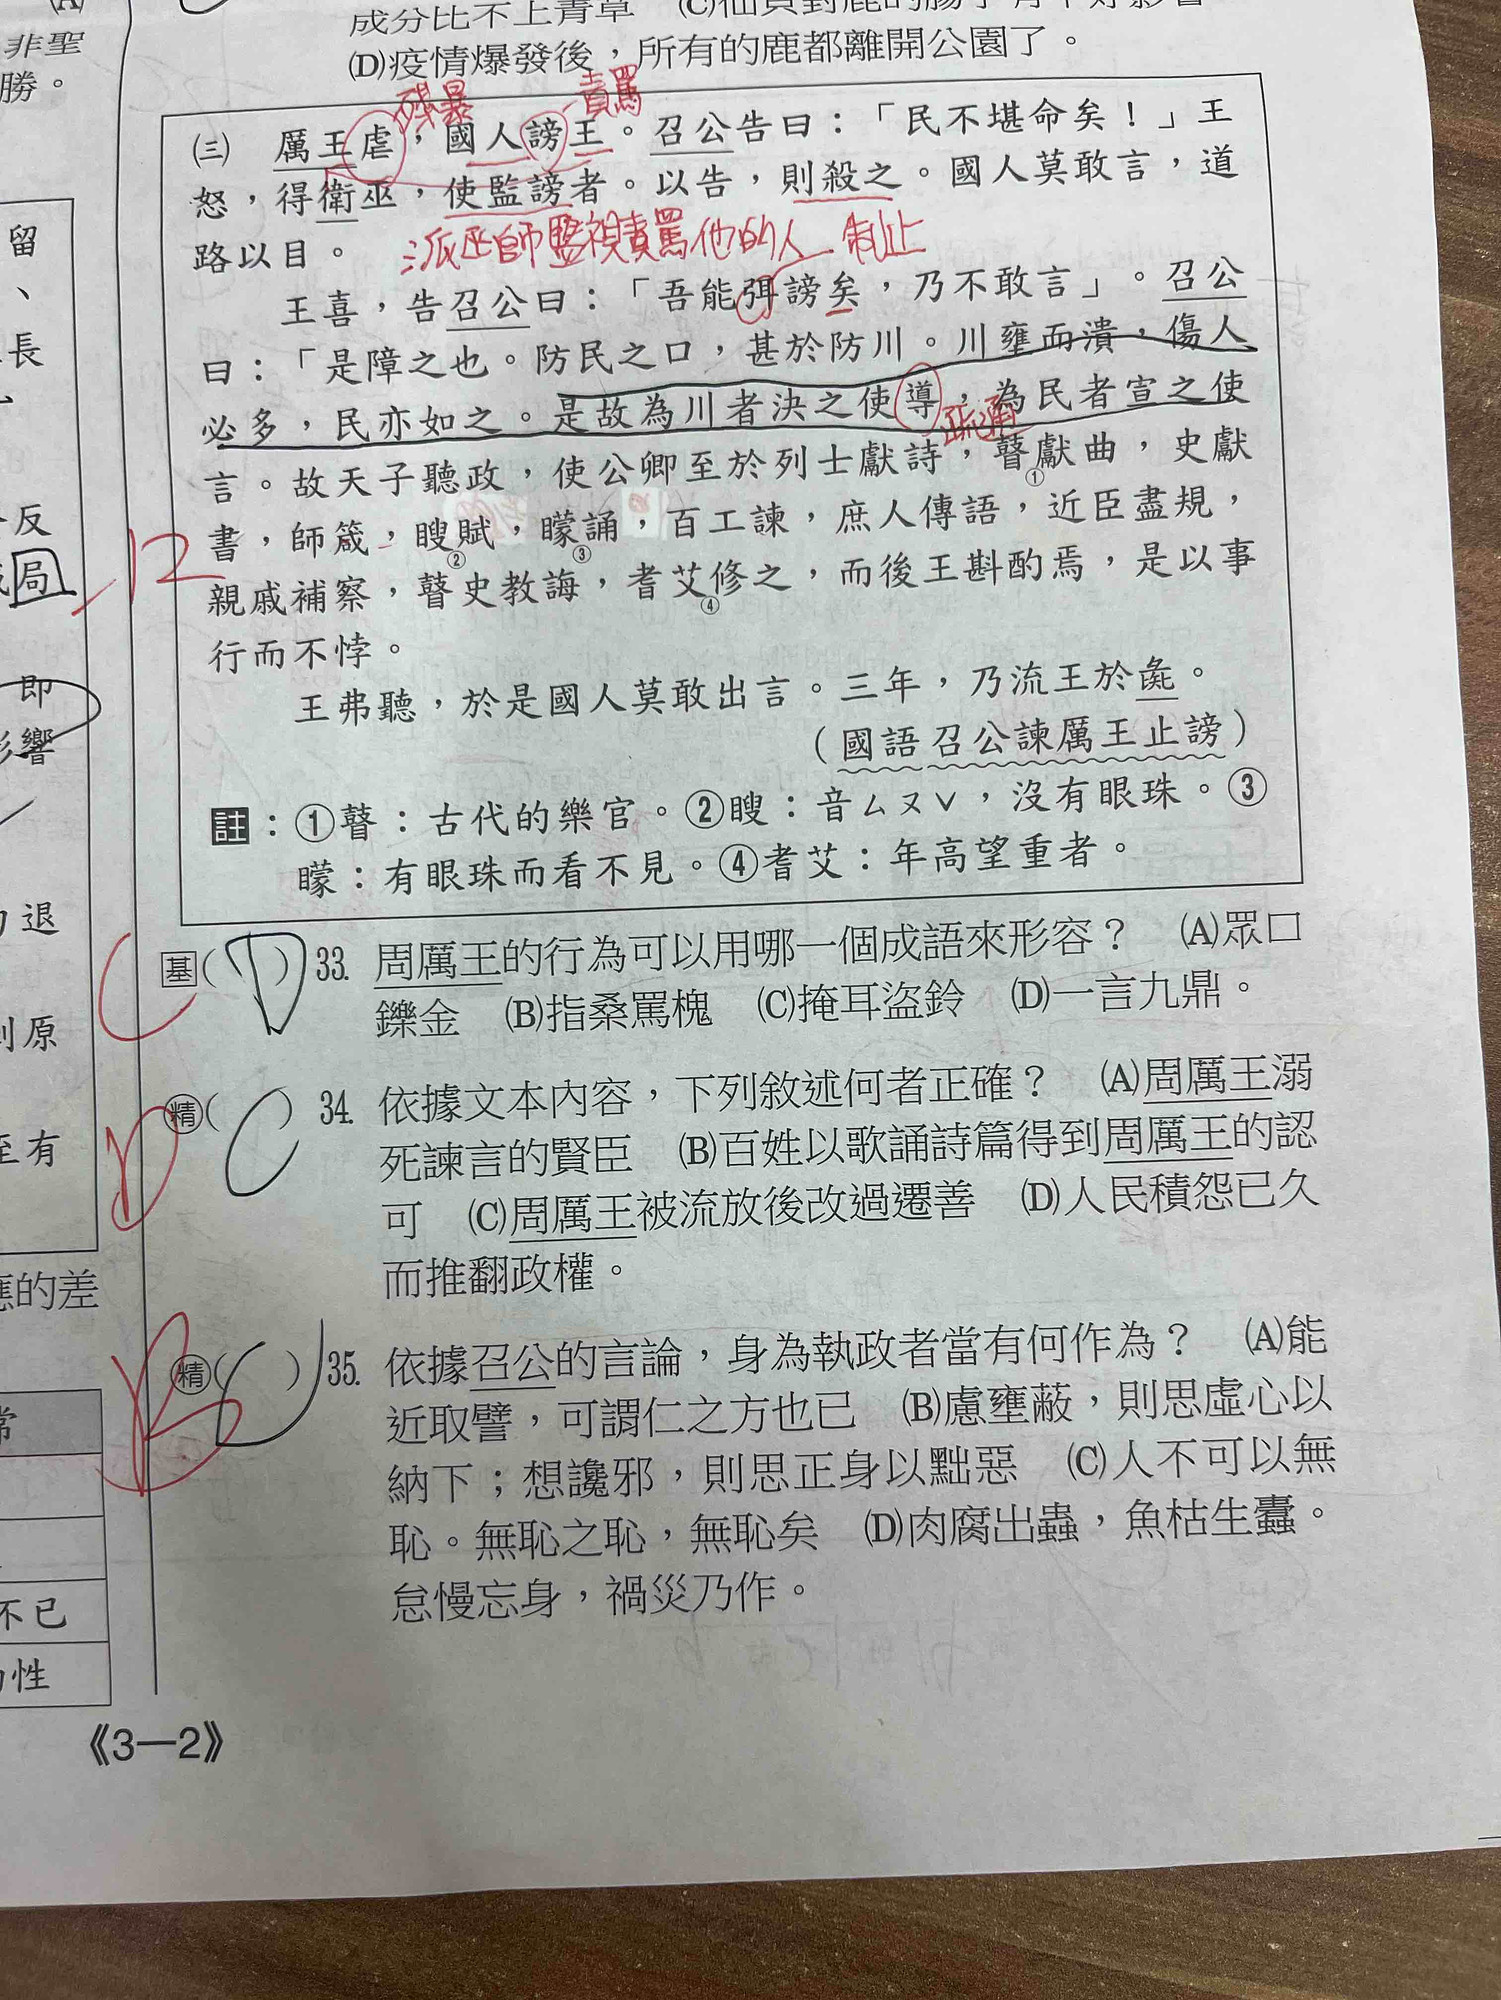 非聖
勝。
留
、
長
反
局
即
影響
退
原
至有
應的差
常
不已
性
成分比不上青草
(D)疫情爆發後，所有的鹿都離開公園了。
殘暴 責罵
㈢ 厲王虐，國人謗王。召公告曰：「民不堪命矣！」王
怒，得衛巫，使監謗者。以告，則殺之。國人莫敢言，道
路以目。
派巫師監視責罵他的人 制止
王喜，告召公曰：「吾能弭謗矣，乃不敢言」。召公
曰：「是障之也。防民之口，甚於防川。川壅而潰，傷人
必多，民亦如之。是故為川者決之使導，為民者宣之使
疏通
言。故天子聽政，使公卿至於列士獻詩，瞽①獻曲，史獻
書，師箴，瞍②賦，矇③誦，百工諫，庶人傳語，近臣盡規，
-12
親戚補察，瞽史教誨，耆艾④修之，而後王斟酌焉，是以事
行而不悖。
王弗聽，於是國人莫敢出言。三年，乃流王於彘。
（國語召公諫厲王止謗）
註：①瞽：古代的樂官。②瞍：音ㄙㄡˇ，沒有眼珠。③
矇：有眼珠而看不見。④耆艾：年高望重者。
C 基( D ) 33. 周厲王的行為可以用哪一個成語來形容？ (A)眾口
鑠金 (B)指桑罵槐 (C)掩耳盜鈴 (D)一言九鼎。
D 精( C ) 34. 依據文本內容，下列敘述何者正確？ (A)周厲王溺
死諫言的賢臣 (B)百姓以歌誦詩篇得到周厲王的認
可 (C)周厲王被流放後改過遷善 (D)人民積怨已久
而推翻政權。
B 精( D ) 35. 依據召公的言論，身為執政者當有何作為？ (A)能
近取譬，可謂仁之方也已 (B)慮壅蔽，則思虛心以
納下；想讒邪，則思正身以黜惡 (C)人不可以無
恥。無恥之恥，無恥矣 (D)肉腐出蟲，魚枯生蠹。
怠慢忘身，禍災乃作。
《3－2》